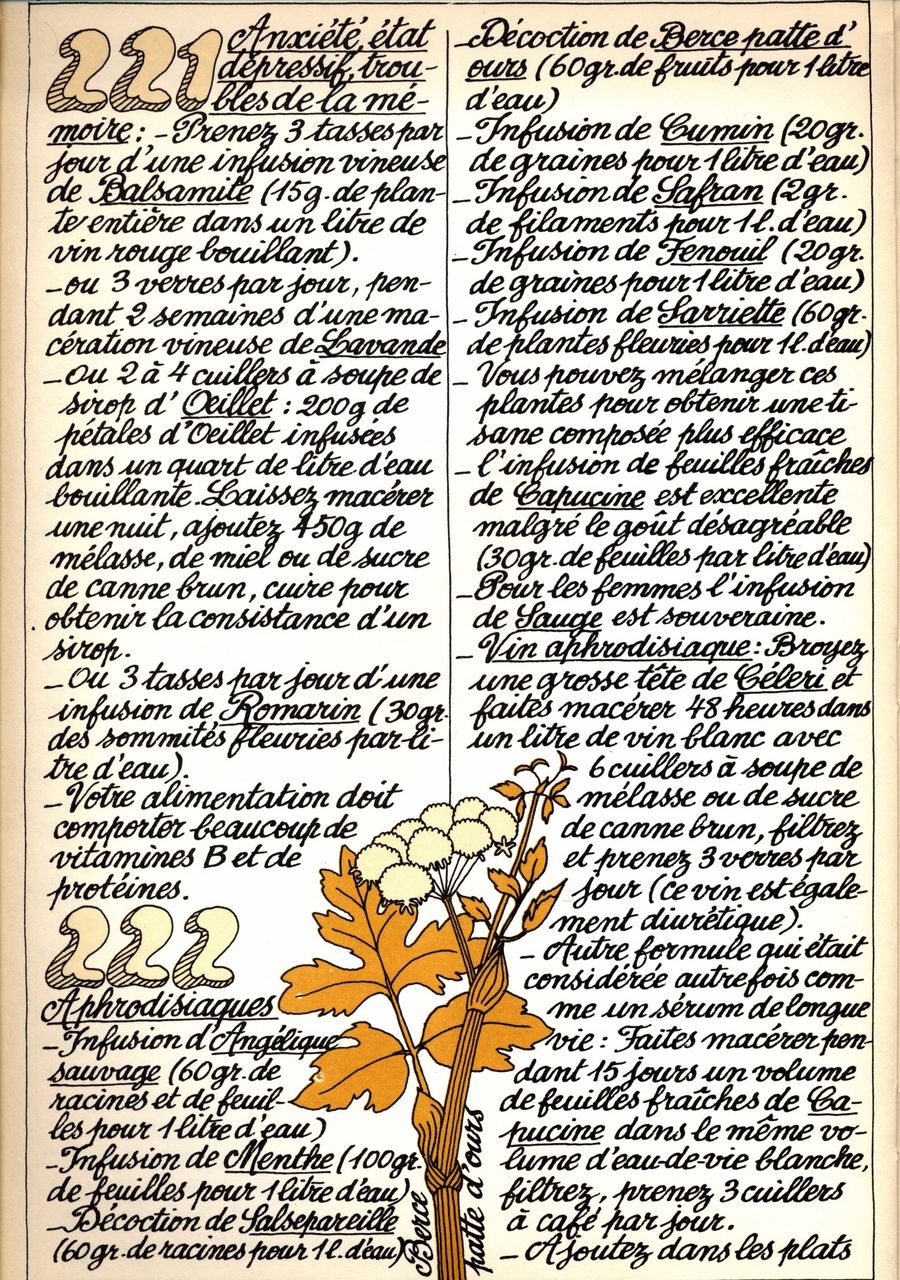 221 Anxiété, état
dépressif, trou-
bles de la mé-
moire : - Prenez 3 tasses par
jour d'une infusion vineuse
de Balsamite (15g. de plan-
te entière dans un litre de
vin rouge bouillant).
-ou 3 verres par jour, pen-
dant 2 semaines d'une ma-
cération vineuse de Lavande
-Ou 2 à 4 cuillers à soupe de
sirop d' Oeillet : 200g de
pétales d'Oeillet infusées
dans un quart de litre d'eau
bouillante. Laissez macérer
une nuit, ajoutez 450g de
mélasse, de miel ou de sucre
de canne brun, cuire pour
obtenir la consistance d'un
sirop.
- Ou 3 tasses par jour d'une
infusion de Romarin (30gr.
des sommités fleuries par li-
tre d'eau).
-Votre alimentation doit
comporter beaucoup de
vitamines B et de
protéines.
222
Aphrodisiaques
-Infusion d'Angélique
sauvage (60gr. de
racines et de feuil-
les pour 1 litre d'eau)
-Infusion de Menthe (100gr.
de feuilles pour 1 litre d'eau)
-Décoction de Salsepareille
(60gr. de racines pour 1l. d'eau)
-Décoction de Berce patte d'
ours (60gr. de fruits pour 1 litre
d'eau)
-Infusion de Cumin (20gr.
de graines pour 1 litre d'eau)
-Infusion de Safran (2gr.
de filaments pour 1l. d'eau)
-Infusion de Fenouil (20gr.
de graines pour 1 litre d'eau)
- Infusion de Sarriette (60gr.
de plantes fleuries pour 1l. d'eau)
- Vous pouvez mélanger ces
plantes pour obtenir une ti-
sane composée plus efficace
- l'infusion de feuilles fraîches
de Capucine est excellente
malgré le goût désagréable
(30gr. de feuilles par litre d'eau)
-Pour les femmes l'infusion
de Sauge est souveraine.
- Vin aphrodisiaque : Broyez
une grosse tête de Céleri et
faites macérer 48 heures dans
un litre de vin blanc avec
6 cuillers à soupe de
mélasse ou de sucre
de canne brun, filtrez
et prenez 3 verres par
jour (ce vin est égale-
ment diurétique).
- Autre formule qui était
considérée autrefois com-
me un sérum de longue
vie : Faites macérer pen-
dant 15 jours un volume
de feuilles fraîches de Ca-
pucine dans le même vo-
lume d'eau-de-vie blanche,
filtrez, prenez 3 cuillers
à café par jour.
- Ajoutez dans les plats
Berce
patte d'ours